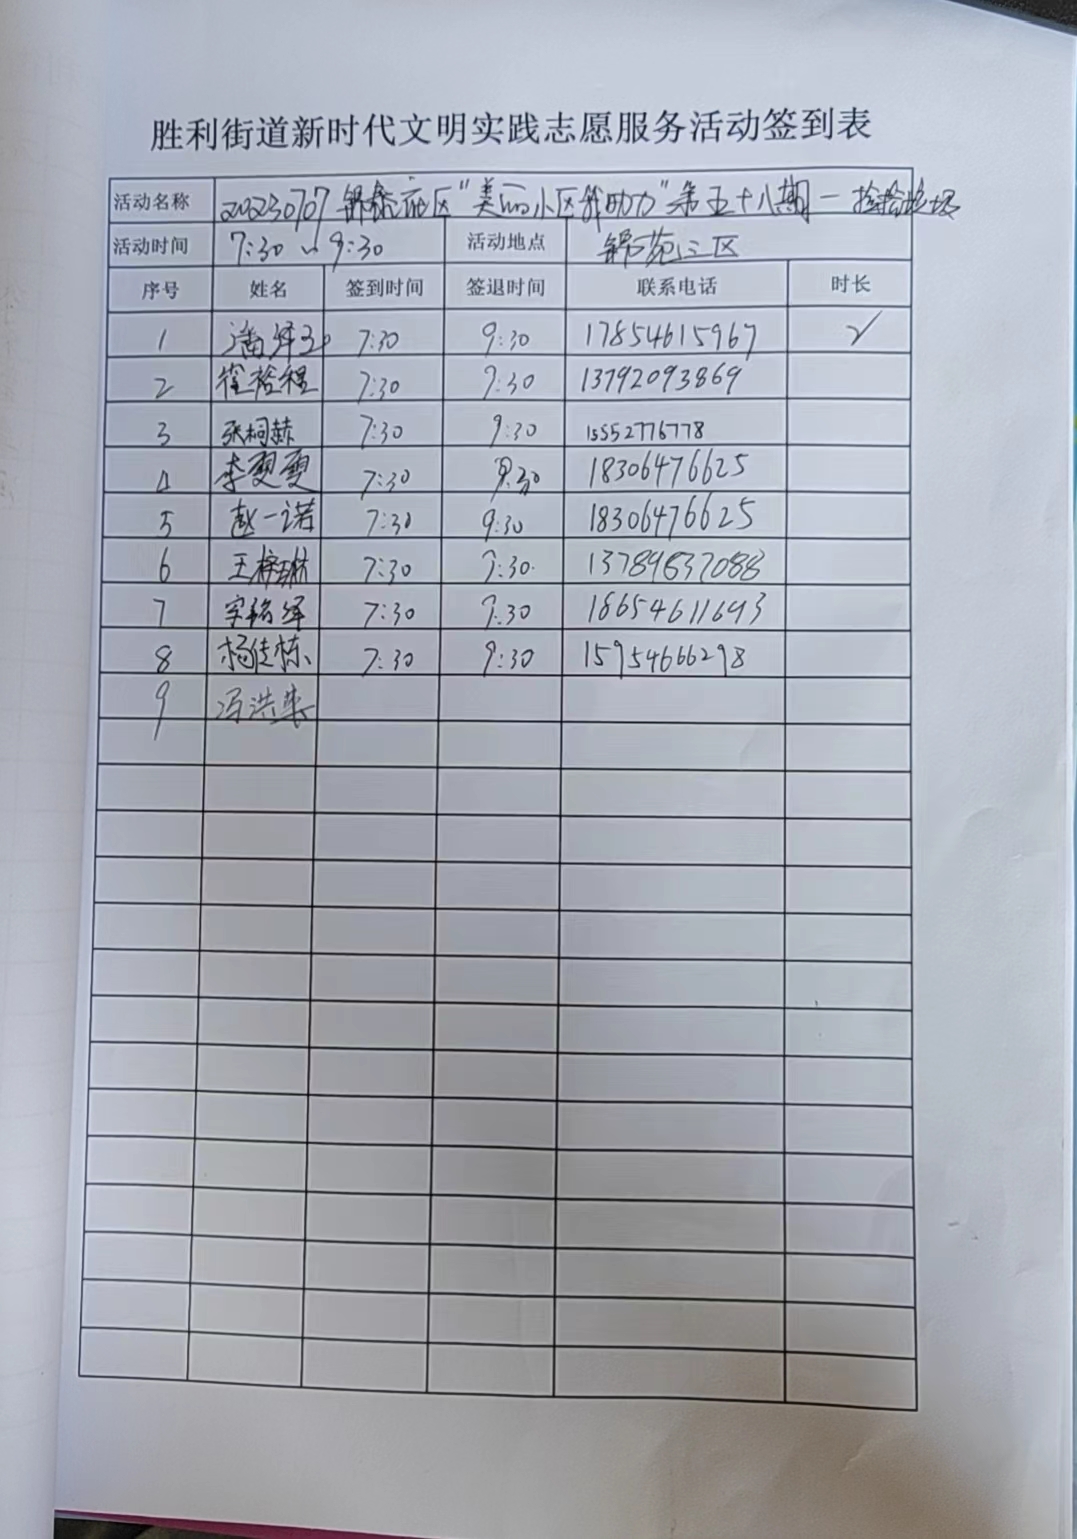 胜利街道新时代文明实践志愿服务活动签到表
活动名称 20230707 社区"美丽小区我助力"第五十八期一捡拾垃圾
活动时间 7:30 ~ 9:30 活动地点 锦苑三区
序号 姓名 签到时间 签退时间 联系电话 时长
1 潘 7:30 9:30 17854615967 2
2 崔裕程 7:30 9:30 13792093869
3 张桐赫 7:30 9:30 15552776778
4 李雯雯 7:30 9:30 18306476625
5 赵一诺 7:30 9:30 18306476625
6 王梓琳 7:30 9:30 13789637088
7 7:30 9:30 18654611693
8 杨佳栋 7:30 9:30 15954666298
9 冯洪